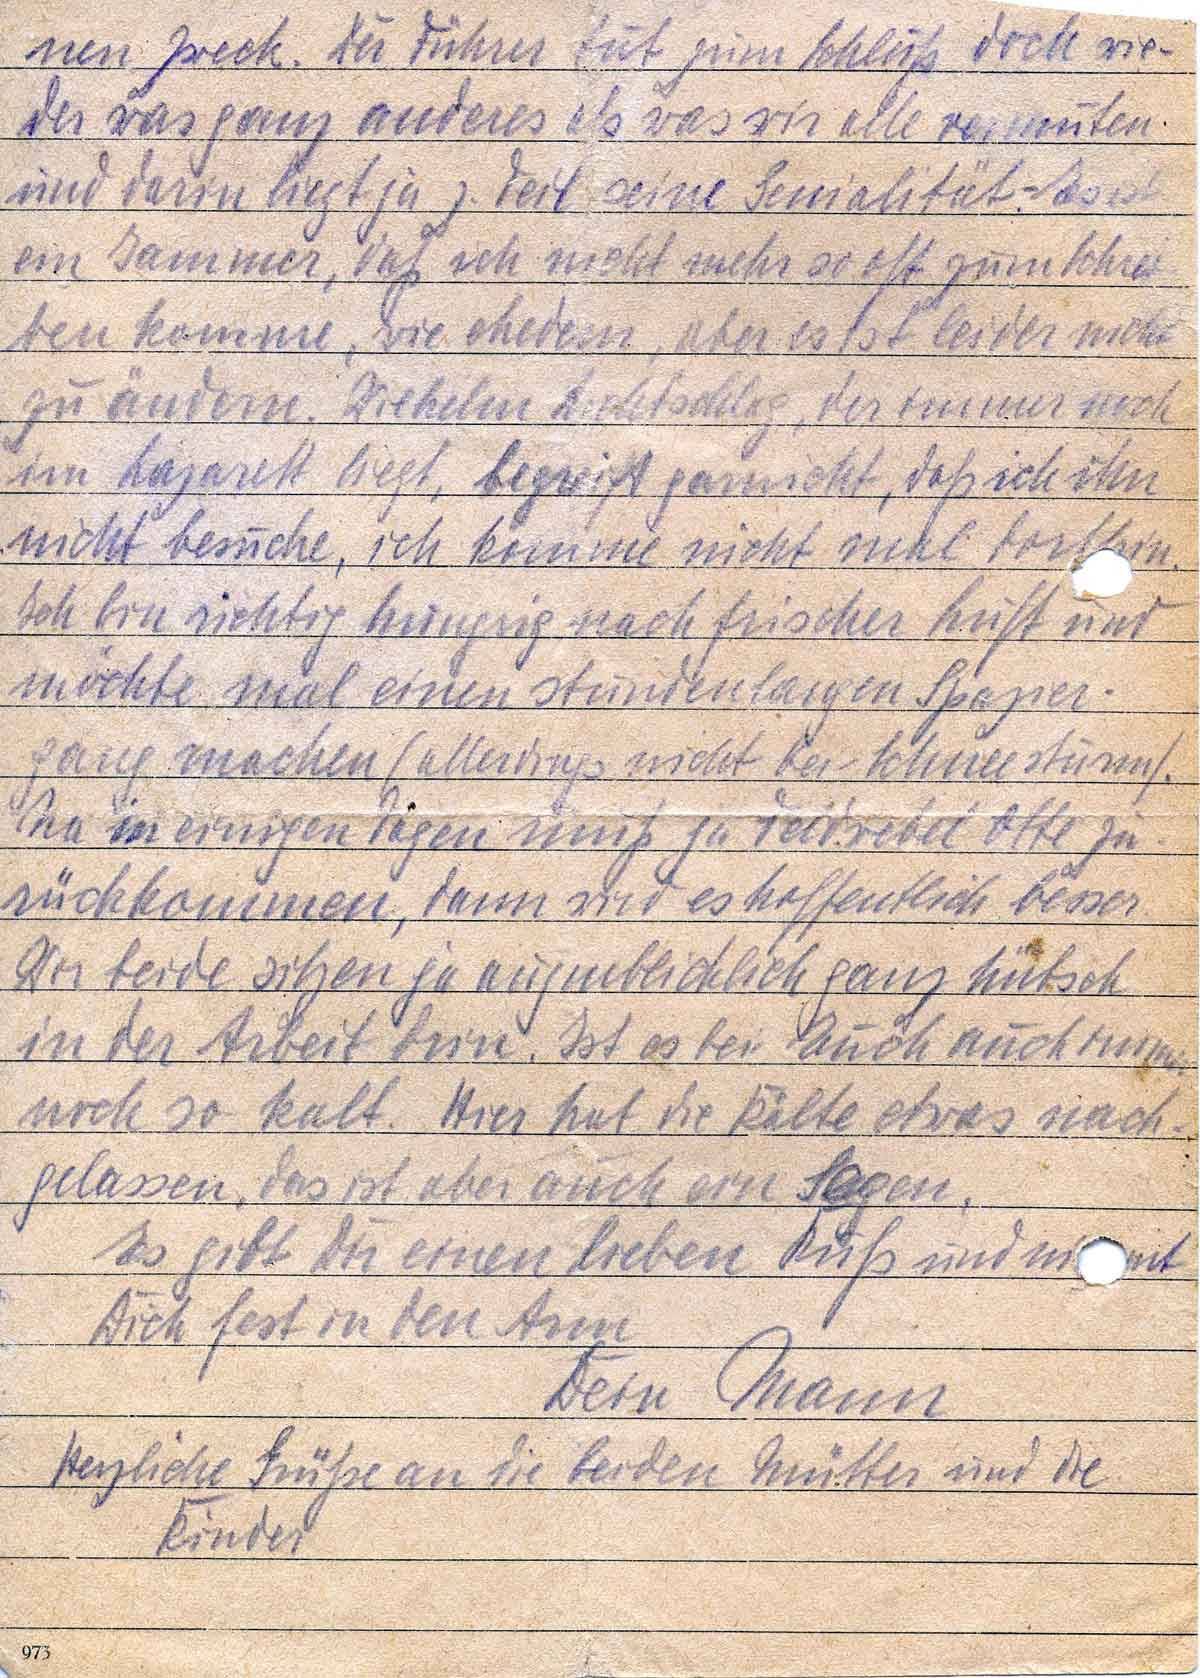 nen Zweck. Der Führer tut zum Schluß doch wie-
der was ganz anderes als was wir alle vermuten.
und darin liegt ja z. Teil seine Genialität. – Es ist
ein Jammer, daß ich nicht mehr so oft zum Schrei
ben komme, wie ehedem, aber es ist leider nicht
zu ändern. Wilhelm, der immer noch
im Lazarett liegt, begreift garnicht, daß ich ihn
nicht besuche, ich komme nicht mal dorthin.
Ich bin richtig hungrig nach frischer Luft und
möchte mal einen stundenlangen Spazier-
gang machen (allerdings nicht bei Schneesturm).
Na in einigen Tagen muß ja Feldwebel Otte zu-
rückkommen, dann wird es hoffentlich besser.
Wir beide sitzen ja augenblicklich ganz hübsch
in der Arbeit drin. Ist es bei Euch auch immer
noch so kalt. Hier hat die Kälte etwas nach-
gelassen, das ist aber auch ein Segen.
Es gibt Dir einen lieben Kuß und nimmt
Dich fest in den Arm
Dein Mann
Herzliche Grüße an die beiden Mütter und die
Kinder
973